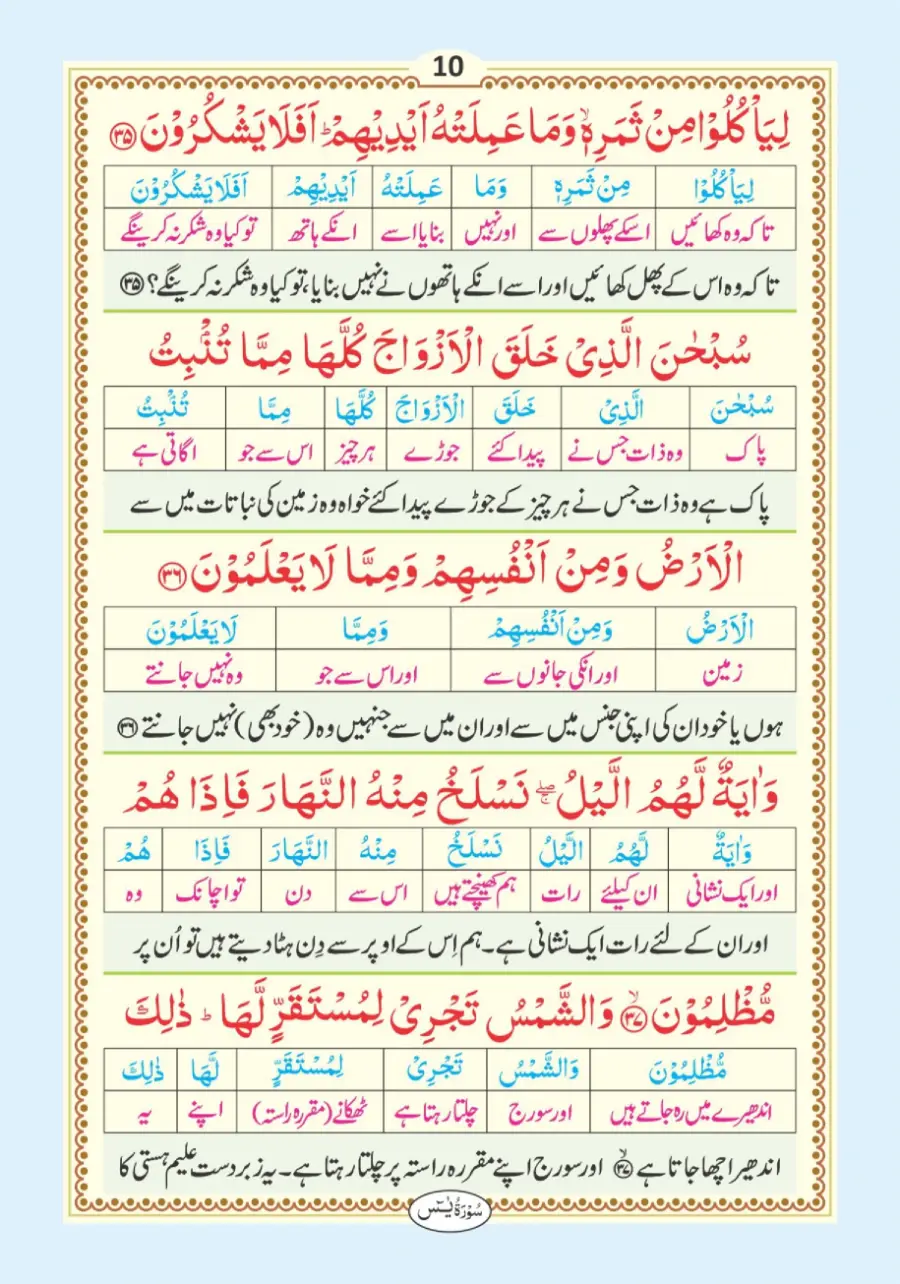 10
لِیَاْکُلُوْا مِنْ ثَمَرِهٖ ۙ وَمَا عَمِلَتْهُ اَیْدِیْهِمْ ؕ اَفَلَا یَشْکُرُوْنَ ﴿۳۵﴾
لِیَاْکُلُوْا مِنْ ثَمَرِهٖ وَمَا عَمِلَتْهُ اَیْدِیْهِمْ اَفَلَا یَشْکُرُوْنَ
تاکہ وہ کھائیں اسکے پھلوں سے اور نہیں بنایا اسے انکے ہاتھ تو کیا وہ شکر نہ کرینگے
تاکہ وہ اس کے پھل کھائیں اور اسے انکے ہاتھوں نے نہیں بنایا، تو کیا وہ شکر نہ کرینگے؟ ﴿۳۵﴾
سُبْحٰنَ الَّذِیْ خَلَقَ الْاَزْوَاجَ کُلَّهَا مِمَّا تُنْۢبِتُ
سُبْحٰنَ الَّذِیْ خَلَقَ الْاَزْوَاجَ کُلَّهَا مِمَّا تُنْۢبِتُ
پاک وہ ذات جس نے پیدا کئے جوڑے ہر چیز اس سے جو اگاتی ہے
پاک ہے وہ ذات جس نے ہر چیز کے جوڑے پیدا کئے خواہ وہ زمین کی نباتات میں سے
الْاَرْضُ وَمِنْ اَنْفُسِهِمْ وَمِمَّا لَا یَعْلَمُوْنَ ﴿۳۶﴾
الْاَرْضُ وَمِنْ اَنْفُسِهِمْ وَمِمَّا لَا یَعْلَمُوْنَ
زمین اور انکی جانوں سے اور اس سے جو وہ نہیں جانتے
ہوں یا خود ان کی اپنی جنس میں سے اور ان میں سے جنہیں وہ (خود بھی) نہیں جانتے ﴿۳۶﴾
وَاٰیَةٌ لَّهُمُ الَّیْلُ ۖۚ نَسْلَخُ مِنْهُ النَّهَارَ فَاِذَا هُمْ
وَاٰیَةٌ لَّهُمُ الَّیْلُ نَسْلَخُ مِنْهُ النَّهَارَ فَاِذَا هُمْ
اور ایک نشانی ان کیلئے رات ہم کھینچتے ہیں اس سے دن تو اچانک وہ
اور ان کے لئے رات ایک نشانی ہے۔ ہم اِس کے اوپر سے دِن ہٹا دیتے ہیں تو اُن پر
مُّظْلِمُوْنَ ﴿ۙ۳۷﴾ وَالشَّمْسُ تَجْرِیْ لِمُسْتَقَرٍّ لَّهَا ؕ ذٰلِكَ
مُّظْلِمُوْنَ وَالشَّمْسُ تَجْرِیْ لِمُسْتَقَرٍّ لَّهَا ذٰلِكَ
اندھیرے میں رہ جاتے ہیں اور سورج چلتا رہتا ہے ٹھکانے (مقررہ راستہ) اپنے یہ
اندھیرا چھا جاتا ہے ﴿ۙ۳۷﴾ اور سورج اپنے مقررہ راستہ پر چلتا رہتا ہے۔ یہ زبردست علیم ہستی کا
سُوْرَةُ یٰسٓ